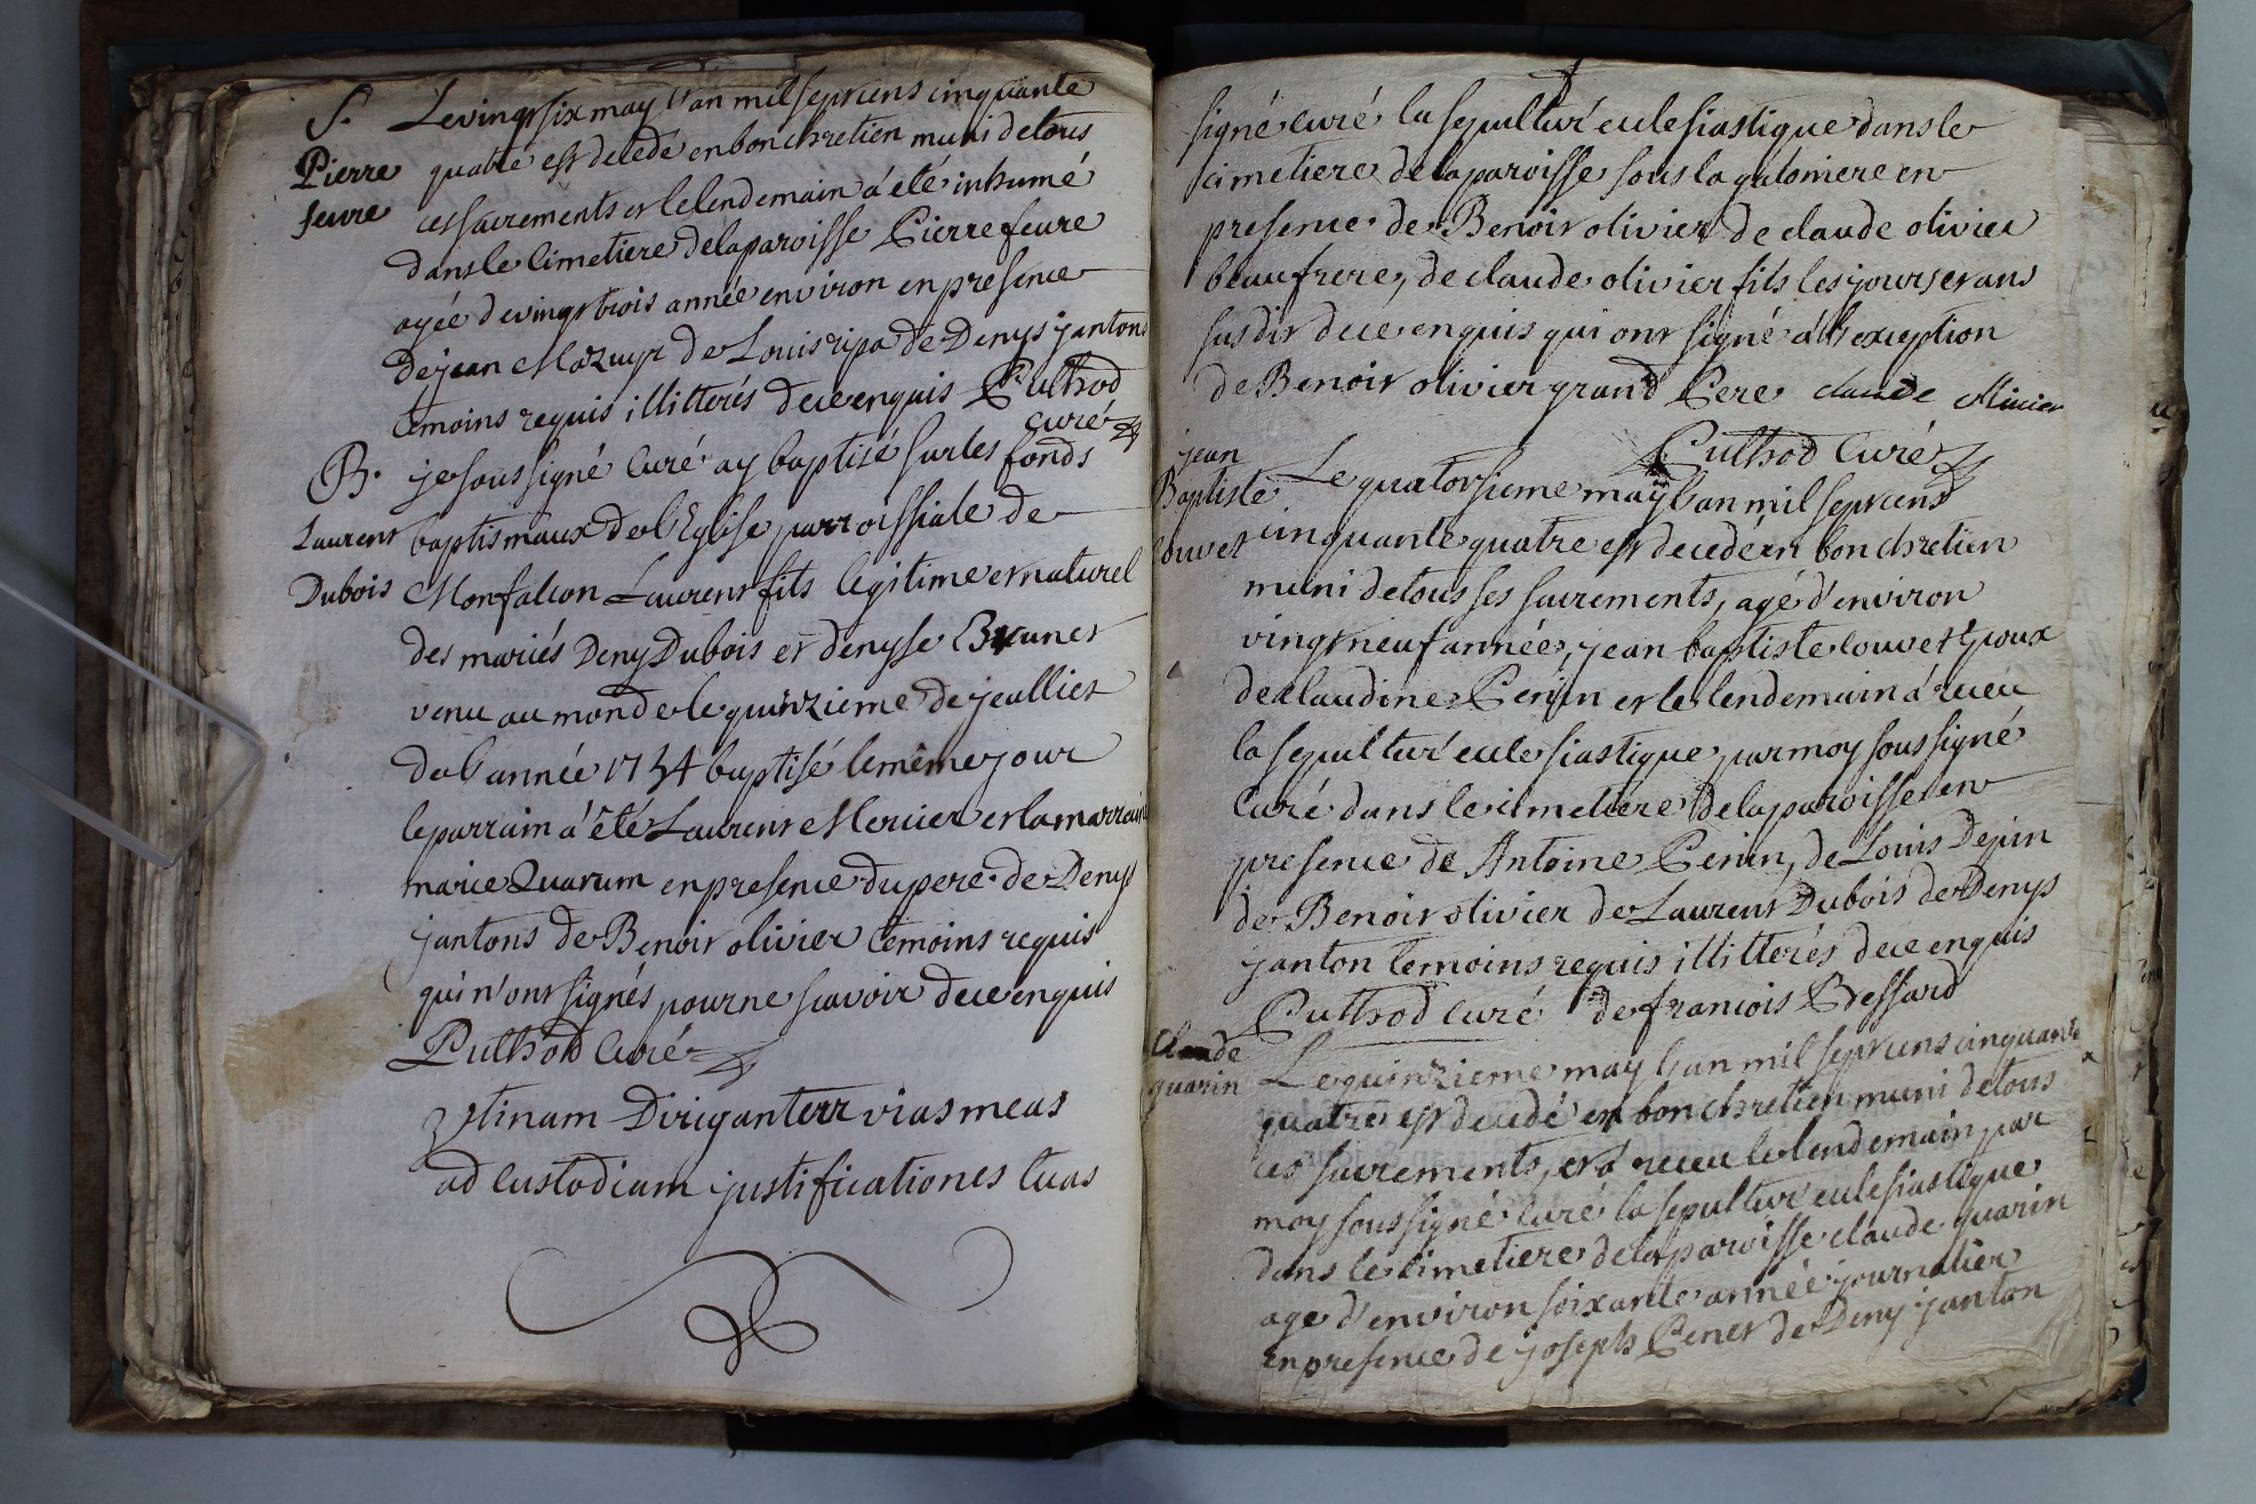 S. Le vingt six may l'an mil sept cens cinquante
Pierre quatre est decede en bon chretien muni de tous
feure ces sacrements et le lendemain à eté inhumé
dans le cimetiere de la paroisse Pierre feure
agée de vingt trois année environ en presence
de jean Mazuyr de Louis ripa de Denys jantons
temoins requis illitterés de ce enquis Puthod
curé
B. je sous signé curé ay baptisé sur les fonds
Laurent baptismaux de l'Eglise parroissiale de
Dubois Monfalcon Laurent fils legitime et naturel
des mariés Deny Dubois et denyse Brunet
venu au monde le quinzieme de jeulliet
de l'année 1754 baptisé le même jour
le parrain à été Laurent Mercier et la marraine
marie Quarum en presence du pere de Denys
jantons de Benoit olivier temoins requis
qui n'ont signés pour ne scavoir de ce enquis
Puthod Curé
Utinam Dirigantur vias meas
ad custodiam justificationes tuas
signé curé la sepultur eclesiastique dans le
cimetiere de la paroisse sous la
presence de Benoit olivier de claude olivier
beaufrere, de claude olivier fils les jours et ans
susdit de ce enquis qui ont signé à l'exception
de Benoit olivier grand Pere claude ollivier
Puthod Curé
jean
Baptiste Le quatorsieme may l'an mil sept cens
louvet cinquante quatre est decedé en bon chretien
muni de tous ses sacrements, agé d'environ
vingt neuf année, jean baptiste louvet Epoux
de claudine Penin et le lendemain à receu
la sepultur eclesiastique par moy sous signé
curé dans le cimetiere de la paroisse en
presence de Antoine Penin, de Louis Dejin
de Benoit olivier de Laurent Dubois de Denys
janton temoins requis illitterés de ce enquis
Puthod curé de francois Bressard
Claude Le quinzieme may l'an mil sept cens cinquante
guarin quatre est decedé en bon chretien muni de tous
ces sacrements, et à receu le lendemain par
moy sous signé curé la sepultur eclesiastique
dans le cimetiere de la paroisse claude guarin
age d'environ soixante année journalier
en presence de joseph Penet de Deny janton